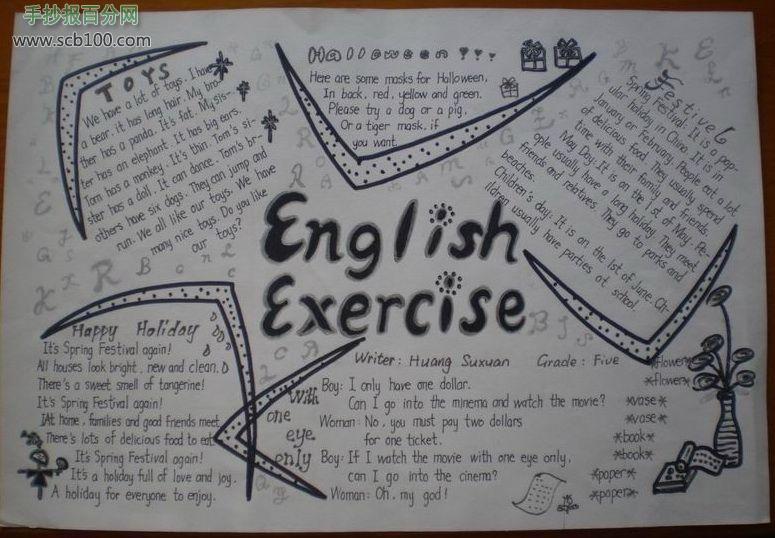 手抄报百分网
www.scb100.com
TOYS
We have a lot of toys. I have
a bear, it has long hair. My bro-
ther has a panda. It's fat. My sis-
ter has an elephant. It has big ears.
Tom has a monkey. It's thin. Tom's si-
ster has a doll. It can dance. Tom's br-
others have six dogs. They can jump and
run. We all like our toys. We have
many nice toys. Do you like
our toys?
Halloween
Here are some masks for Halloween,
In back, red, yellow and green.
Please try a dog or a pig,
Or a tiger mask, if
you want.
Festive
Spring Festival: It is a pop-
ular holiday in China. It is in
January or February. People eat a lot
of delicious food. They usually spend
time with their family and friends
May Day: It is on the 1st of May. Pe-
ople usually have a long holiday. They meet
friends and relatives. They go to parks and
beaches.
Children's day: It is on the 1st of June. Ch-
ildren usually have parties at school.
English
Exercise
Writer: Huang Suxuan Grade: Five
Happy Holiday
It's Spring Festival again!
All houses look bright, new and clean.
There's a sweet smell of tangerine!
It's Spring Festival again!
At home, families and good friends meet
There's lots of delicious food to eat
It's Spring Festival again!
It's a holiday full of love and joy.
A holiday for everyone to enjoy.
With
one
eye
only
Boy: I only have one dollar.
Can I go into the minema and watch the movie?
Woman: No, you must pay two dollars
for one ticket.
Boy: If I watch the movie with one eye only,
can I go into the cinema?
Woman: Oh, my god!
*flower*
*flower*
*vase*
*vase*
*book*
*book*
*paper*
*paper*